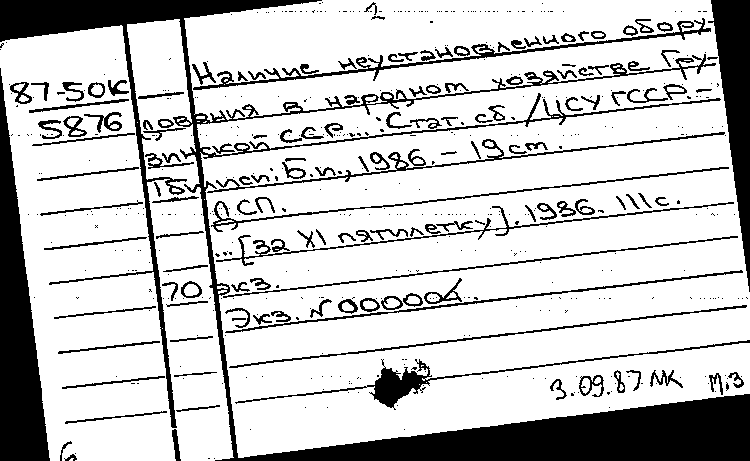 2
Наличие неустановленного обору-
87-50К
дования в народном хозяйстве Гру-
5876
зинской ССР... : Стат. сб. / ЦСУ ГССР. –
Тбилиси: Б.и., 1986. – 19 cm.
ДСП.
... [за XI пятилетку]. 1986. 111 с.
70 экз.
Экз. N 000004.
3.09.87 МК